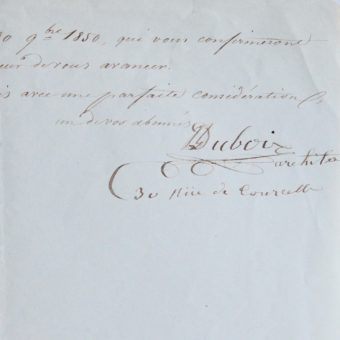 30 9bre 1850, qui vous confirmeront
de vous avancer.
avec une parfaite considération
un de vos abonnés
Dubois
archite
30 Rue de Courcell